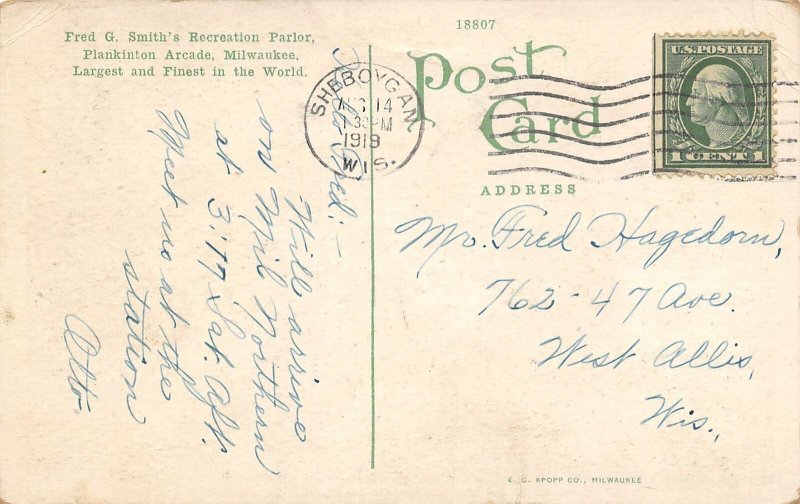 Fred G. Smith's Recreation Parlor,
Plankinton Arcade, Milwaukee.
Largest and Finest in the World.
18807
Post
Card
SHEBOYGAN,
AUG 14
1919
WIS.
U.S. POSTAGE
1 CENT 1
ADDRESS
Hello Fred:—
Will arrive
on Mil Northern
at 3:17 Sat. Aft.
Meet us at the
station
Otto.
Mr. Fred Hagedorn,
762-47 Ave.
West Allis,
Wis.,
E. C. KROPP CO., MILWAUKEE